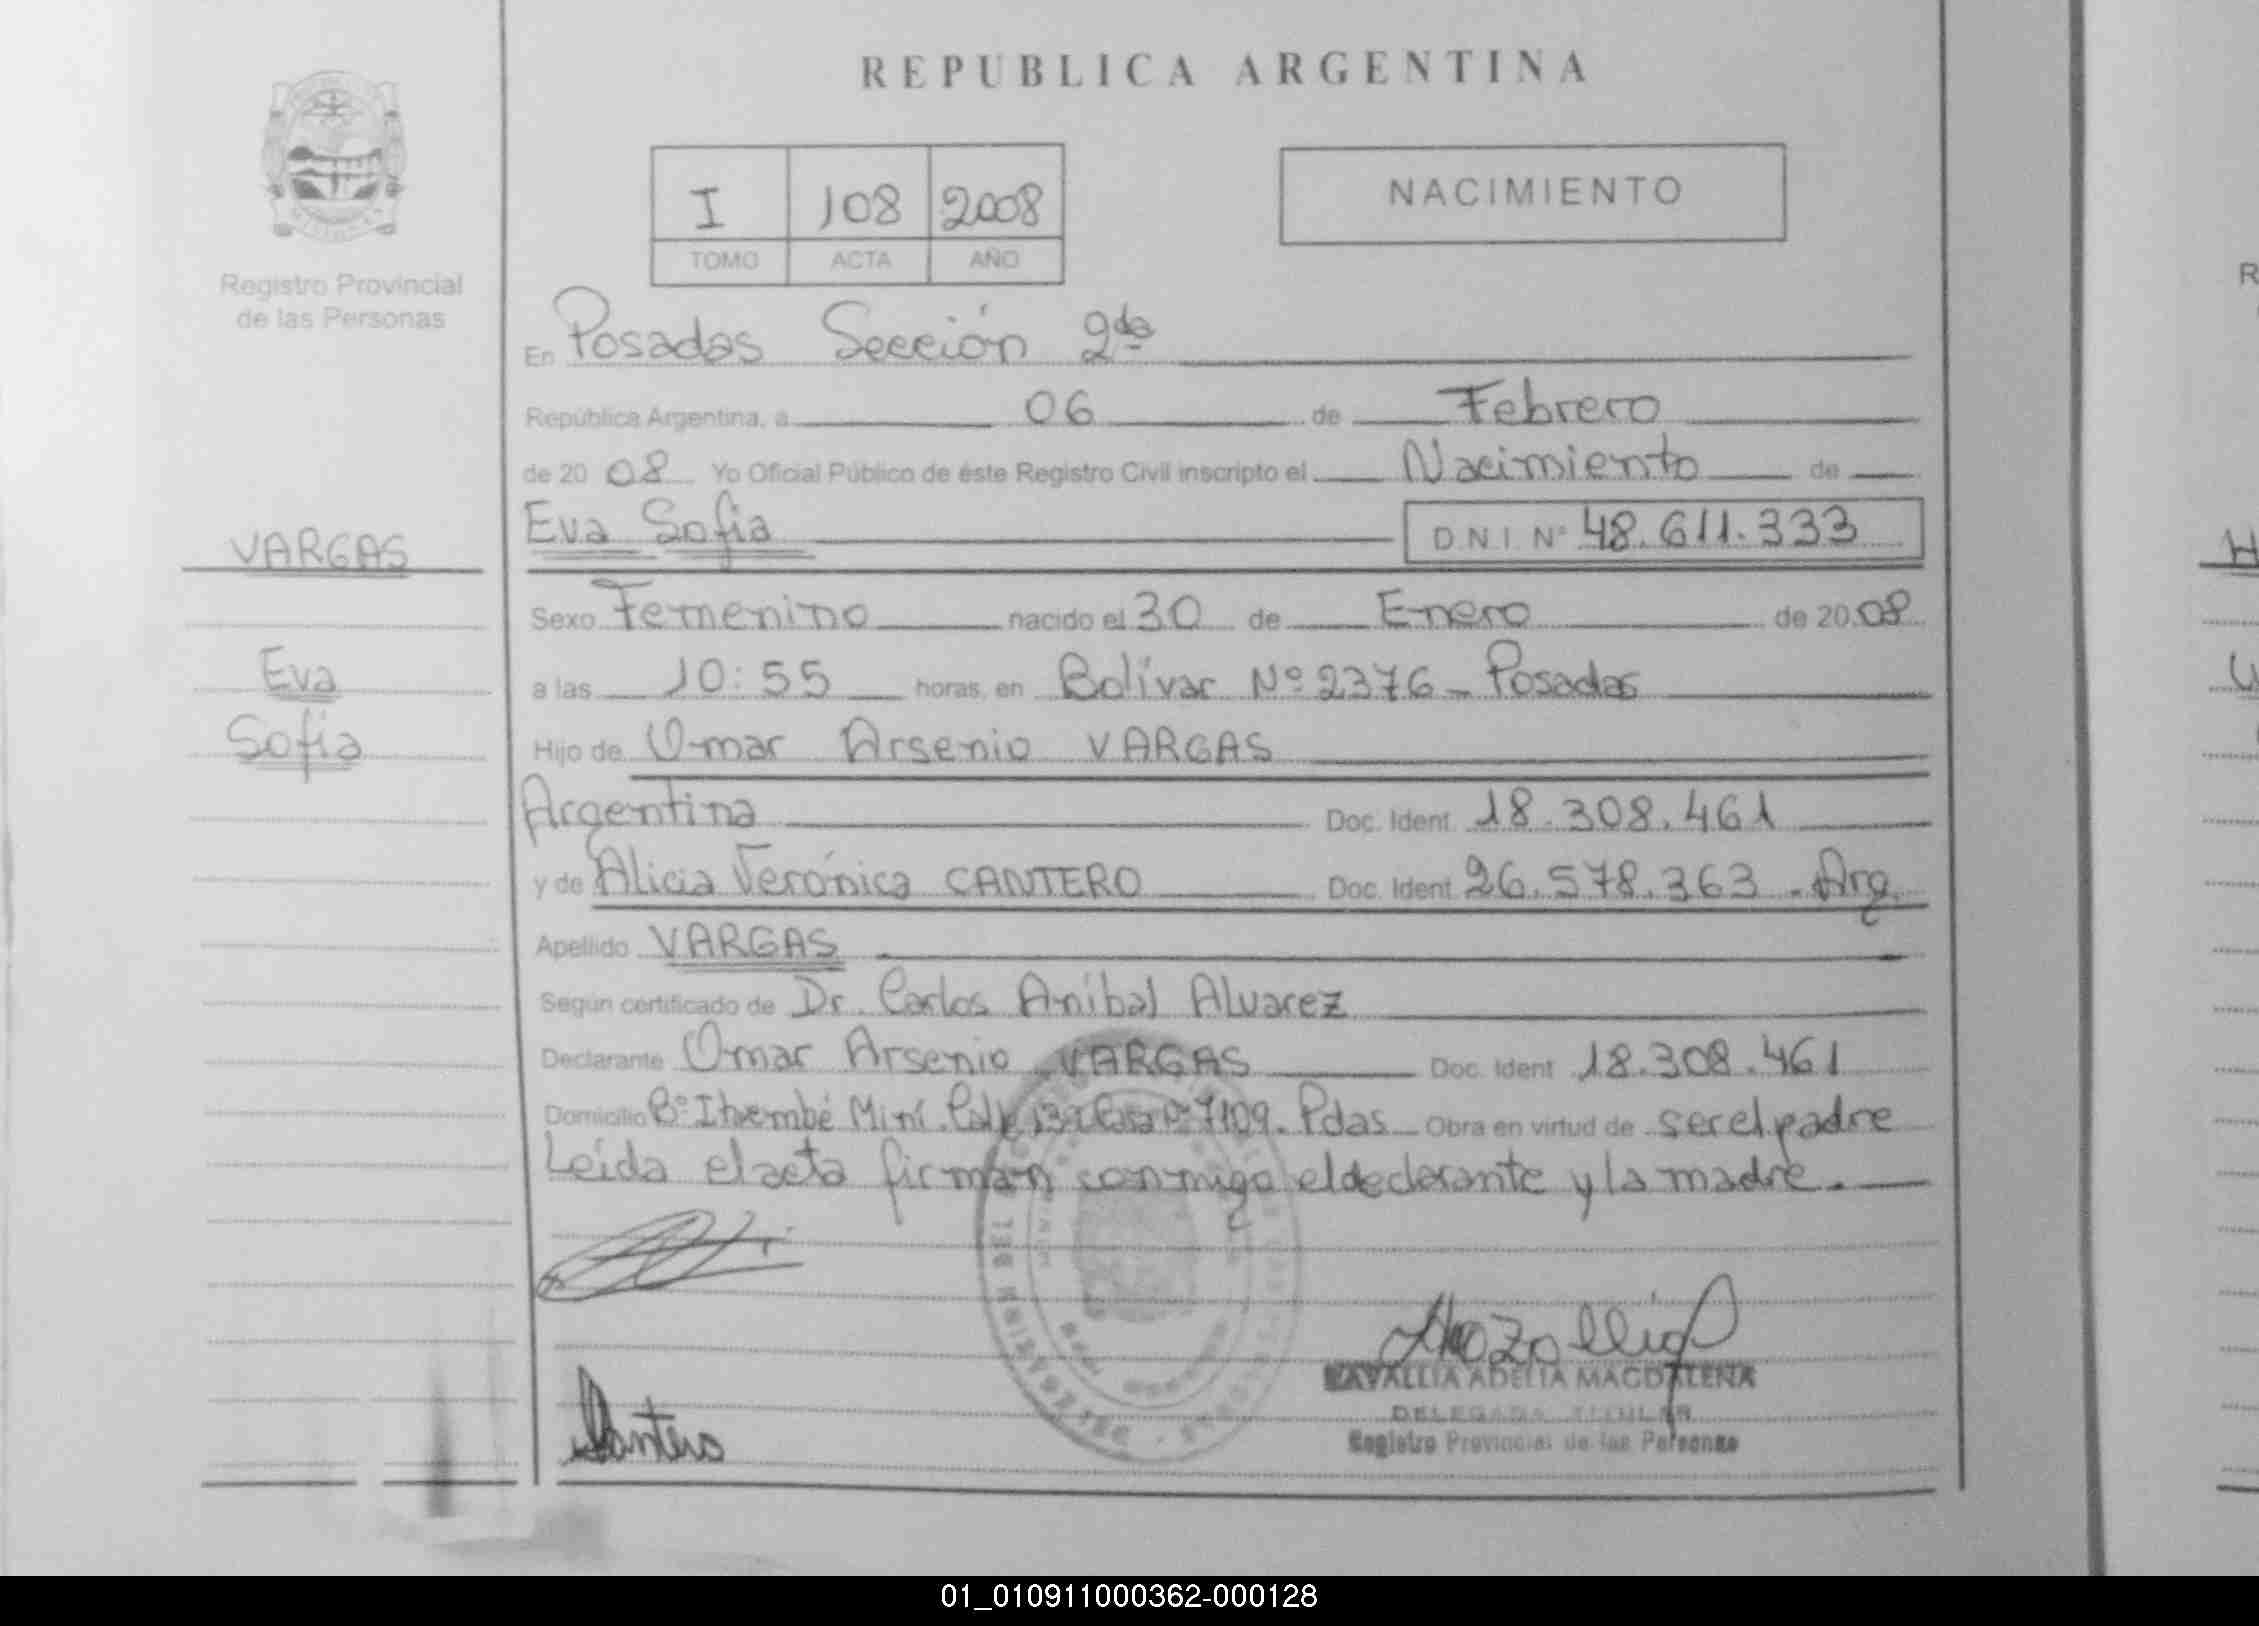 REPUBLICA ARGENTINA
I 108 2008
TOMO ACTA AÑO
NACIMIENTO
Registro Provincial
de las Personas
VARGAS
Eva
Sofia
En Posadas Sección 2da
República Argentina, a 06 de Febrero
de 20 08 Yo Oficial Público de éste Registro Civil inscripto el Nacimiento de
Eva Sofia D.N.I. Nº 48.611.333
Sexo Femenino nacido el 30 de Enero de 20 08
a las 10:55 horas, en Bolívar Nº 2376 - Posadas
Hijo de Omar Arsenio VARGAS
Argentina Doc. Ident. 18.308.461
y de Alicia Verónica CANTERO Doc. Ident. 26.578.363 - Arg.
Apellido VARGAS
Según certificado de Dr. Carlos Aníbal Alvarez
Declarante Omar Arsenio VARGAS Doc. Ident. 18.308.461
Domicilio Bº Itaembé Miní. Calle Casa Nº 7109. Pdas Obra en virtud de ser el padre
Leída el acta firman conmigo el declarante y la madre.
Cantero
ADELIA MAGDALENA
DELEGADA TITULAR
Registro Provincial de las Personas
01_010911000362-000128